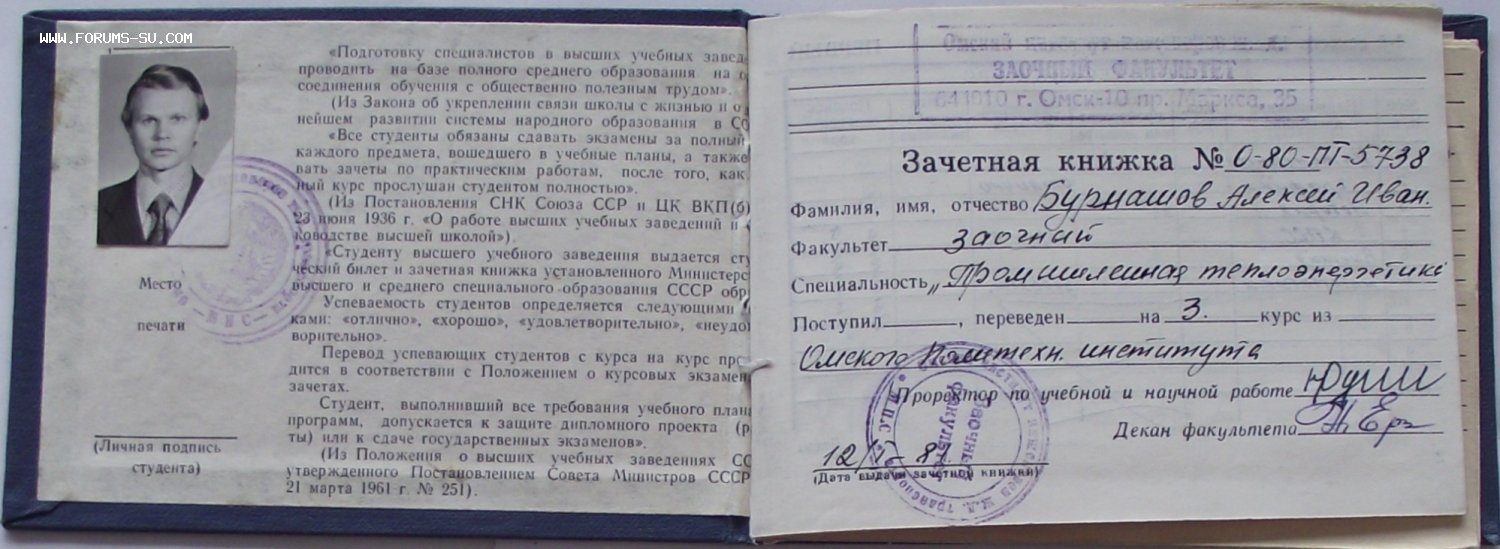 www.forums-su.com
«Подготовку специалистов в высших учебных завед
проводить на базе полного среднего образования на о
соединения обучения с общественно полезным трудом».
(Из Закона об укреплении связи школы с жизнью и о д
нейшем развитии системы народного образования в СС
«Все студенты обязаны сдавать экзамены за полный
каждого предмета, вошедшего в учебные планы, а также
вать зачеты по практическим работам, после того, как
ный курс прослушан студентом полностью».
(Из Постановления СНК Союза ССР и ЦК ВКП(б)
23 июня 1936 г. «О работе высших учебных заведений и
ководстве высшей школой»).
«Студенту высшего учебного заведения выдается сту
ческий билет и зачетная книжка установленного Министерс
высшего и среднего специального образования СССР обр
Успеваемость студентов определяется следующими
ками: «отлично», «хорошо», «удовлетворительно», «неудо
ворительно».
Перевод успевающих студентов с курса на курс про
дится в соответствии с Положением о курсовых экзамен
зачетах.
Студент, выполнивший все требования учебного плана
программ, допускается к защите дипломного проекта (р
ты) или к сдаче государственных экзаменов».
(Из Положения о высших учебных заведениях СС
утвержденного Постановлением Совета Министров СССР
21 марта 1961 г. № 251).
Место
печати
(Личная подпись
студента)
ЗАОЧНЫЙ ФАКУЛЬТЕТ
644010 г. Омск-10 пр. Маркса, 35
Зачетная книжка № О-80-ПТ-5738
Фамилия, имя, отчество Бурнашов Алексей Иван.
Факультет заочний
Специальность „Промышленная теплоэнергетика
Поступил , переведен на 3. курс из
Омского Политехн. института
Проректор по учебной и научной работе
Декан факультета
(Дата выдачи зачетной книжки)
Заочный
факультет